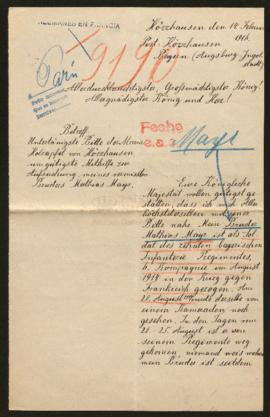 ALEMANES EN FRANCIA
Hörzhausen den 14. Februar
1916.
Post Hörzhausen
Bayern (Augsburg-Ingol-
stadt)
París
9190
Allerdurchlauchtigster, Großmächtigster König!
Allergnädigster König und Herr!
Fecha
e.a.a
Maye
Betreff
Untertänigste Bitte der Maria
Holzapfel von Hörzhausen
um gütigste Mithilfe zur
Auffindung meines vermißten
Bruders Mathias Maye.
Eure Königliche
Majestät wollen gütigst ge
statten, daß ich mich Aller
höchstdenselben mit einer
Bitte nahe. Mein Bruder
Mathias Maye ist als Sol
dat des zehnten bayerischen
Infanterie Regimentes,
6. Kompagnie im August
1914 in den Krieg gegen
Frankreich gezogen. Am
21. August wurde derselbe von
einem Kameraden noch
gesehen. In den Tagen vom
21.-25. August ist er von
seinem Regimente weg
gekommen, niemand weiß wohin
mein Bruder ist seitdem